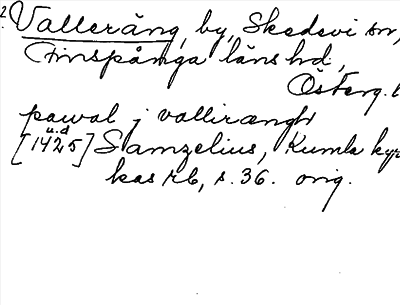 2. Valleräng, by, Skedevi sn,
Finspånga läns hd,
Österg. l
pawal j vallirængh
u.d
[1425] Samzelius, Kumla ky
kas rb, s. 36. orig.